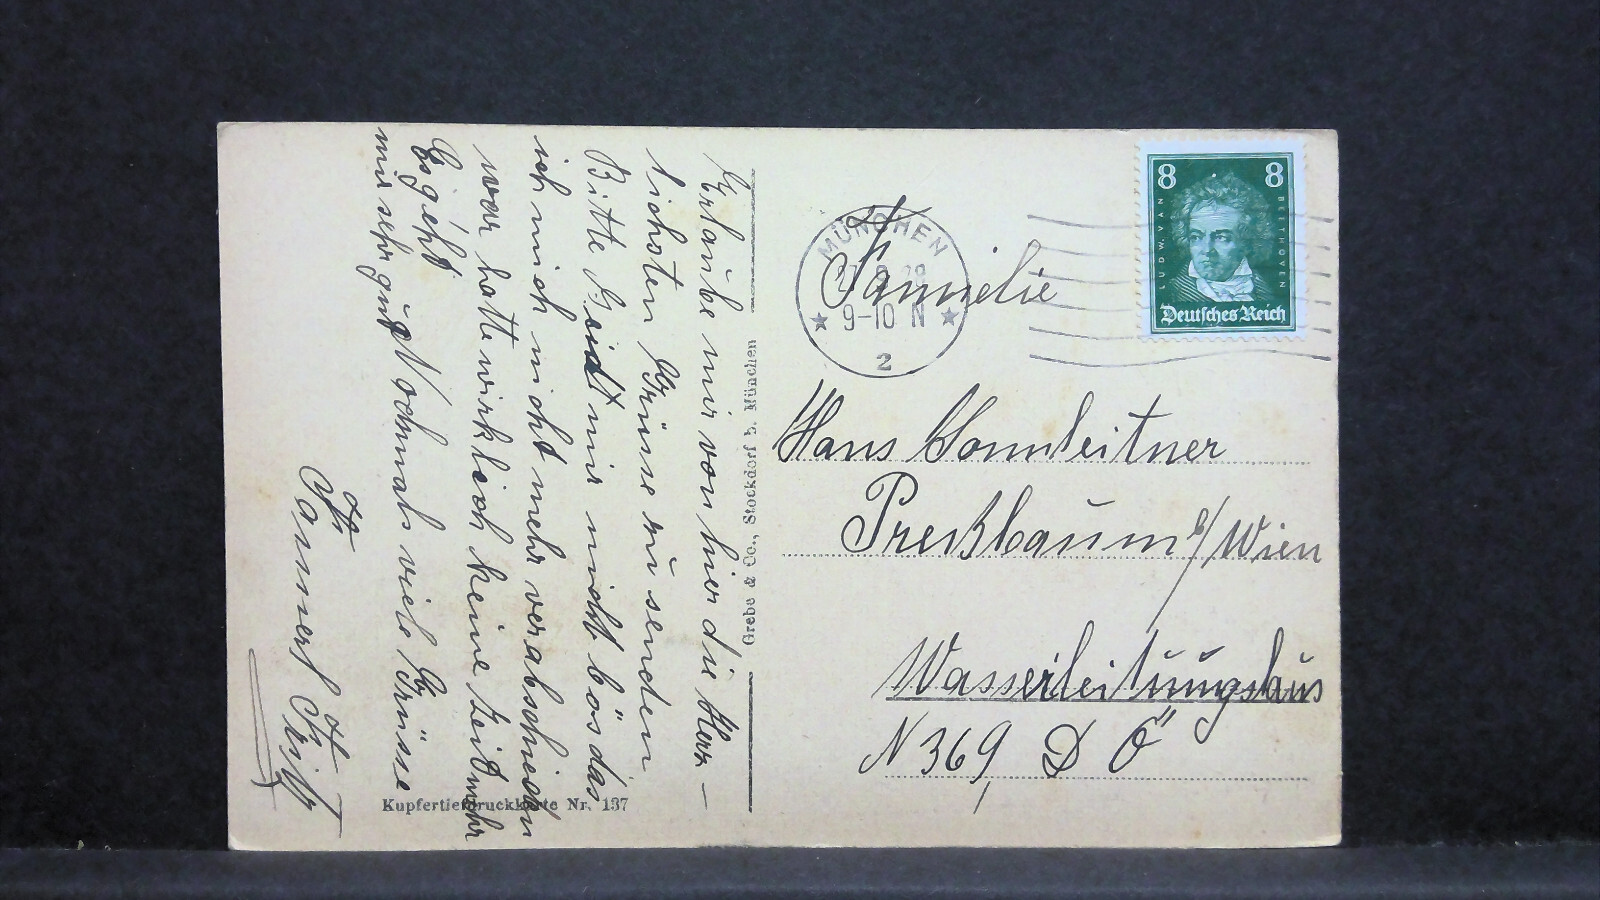 Erlaube mir von hier die Herz-
lichsten Grüsse zu senden
Bitte seidt mir nicht bös das
ich mich nicht mehr verabschieden
war hatte wirklich keine Zeit mehr
Es geht
mir sehr gut Nochmals viele Grüsse
Ihr
Fritz
Kupfertiefdruckkarte Nr. 137
Grebe & Co., Stockdorf b. München
MÜNCHEN
9-10 N
2
8 8
LUDW. VAN BEETHOVEN
Deutsches Reich
Familie
Hans Sonnleitner
Preßbaum b/Wien
Wasserleitungshaus
N 369, D Ö